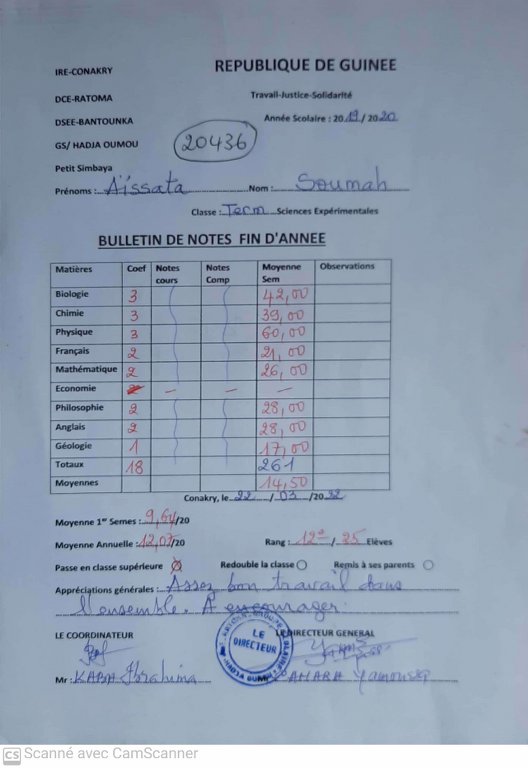 IRE-CONAKRY
REPUBLIQUE DE GUINEE
DCE-RATOMA
Travail-Justice-Solidarité
DSEE-BANTOUNKA
Année Scolaire : 2019/2020
GS/ HADJA OUMOU
20436
Petit Simbaya
Prénoms : Aïssata Nom : Soumah
Classe : Term Sciences Expérimentales
BULLETIN DE NOTES FIN D'ANNEE
Matières Coef Notes cours Notes Comp Moyenne Sem Observations
Biologie 3 42,00
Chimie 3 39,00
Physique 3 60,00
Français 2 21,00
Mathématique 2 26,00
Economie — — —
Philosophie 2 28,00
Anglais 2 28,00
Géologie 1 17,00
Totaux 18 261
Moyennes 14,50
Conakry, le 22/03/2022
Moyenne 1er Semes : 9,64/20
Moyenne Annuelle : 12,07/20 Rang : 12e / 35 Elèves
Passe en classe supérieure Redouble la classe Remis à ses parents
Appréciations générales : Assez bon travail dans
l'ensemble. A encourager.
LE COORDINATEUR LE DIRECTEUR GENERAL
LE DIRECTEUR
Mr : KABA Ibrahima CAMARA
CS Scanné avec CamScanner